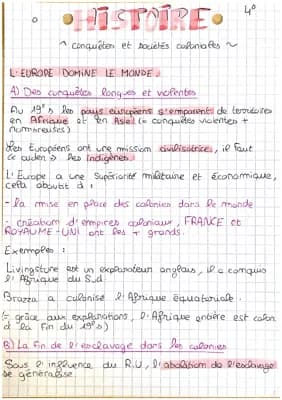 HISTOIRE
4°
~ conquêtes et sociétés coloniales ~
L'EUROPE DOMINE LE MONDE.
A) Des conquêtes longues et violentes
Au 19°s les pays européens s'emparent de territoires
en Afrique et en Asie (= conquêtes violentes +
nombreuses)
Les Européens ont une mission civilisatrice, il faut
les indigènes.
L'Europe a une supériorité militaire et économique,
cela aboutit à :
- la mise en place des colonies dans le monde
- création d'empires coloniaux, FRANCE et
ROYAUME-UNI ont les + grands.
Exemples :
Livingstone est un explorateur anglais, il a conquis
l'Afrique du Sud.
Brazza a colonisé l'Afrique équatoriale.
(= grâce aux explorations, l'Afrique entière est colon
à la fin du 19°s)
B) La fin de l'esclavage dans les colonies
Sous l'influence du R.U, l'abolition de l'esclavage
se généralise.